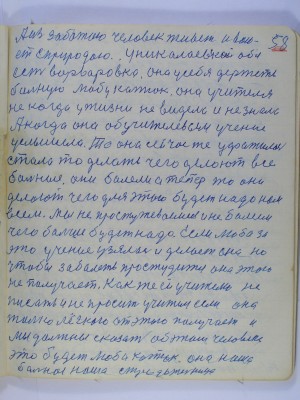 А из забытою человек живет и вою-
ет с природою. У николаевской обл
есть варваровка, она у себя держеть
бальную Любу каток, она учителя
не когда у жизни не видела и не знала
А когда она об учителевым учение
услышела. То она сейчас же удастились
стала то делать чего делают все
бальные, они балели а тепер же они
делают чего для этого будет надо нам
всем. Мы не простуживаемся и не балеем
чего больше будет нада Если Люба за
это учение узялась и делает она но
чтобы заболеть простудится она этого
не получает. Как же ей учителю не
писать и не просить учителя если она
только лёгкого от этого получает и
мы должны сказать об этом человеке
это будет Люба каток. она наша
бальная наша страдалница
58